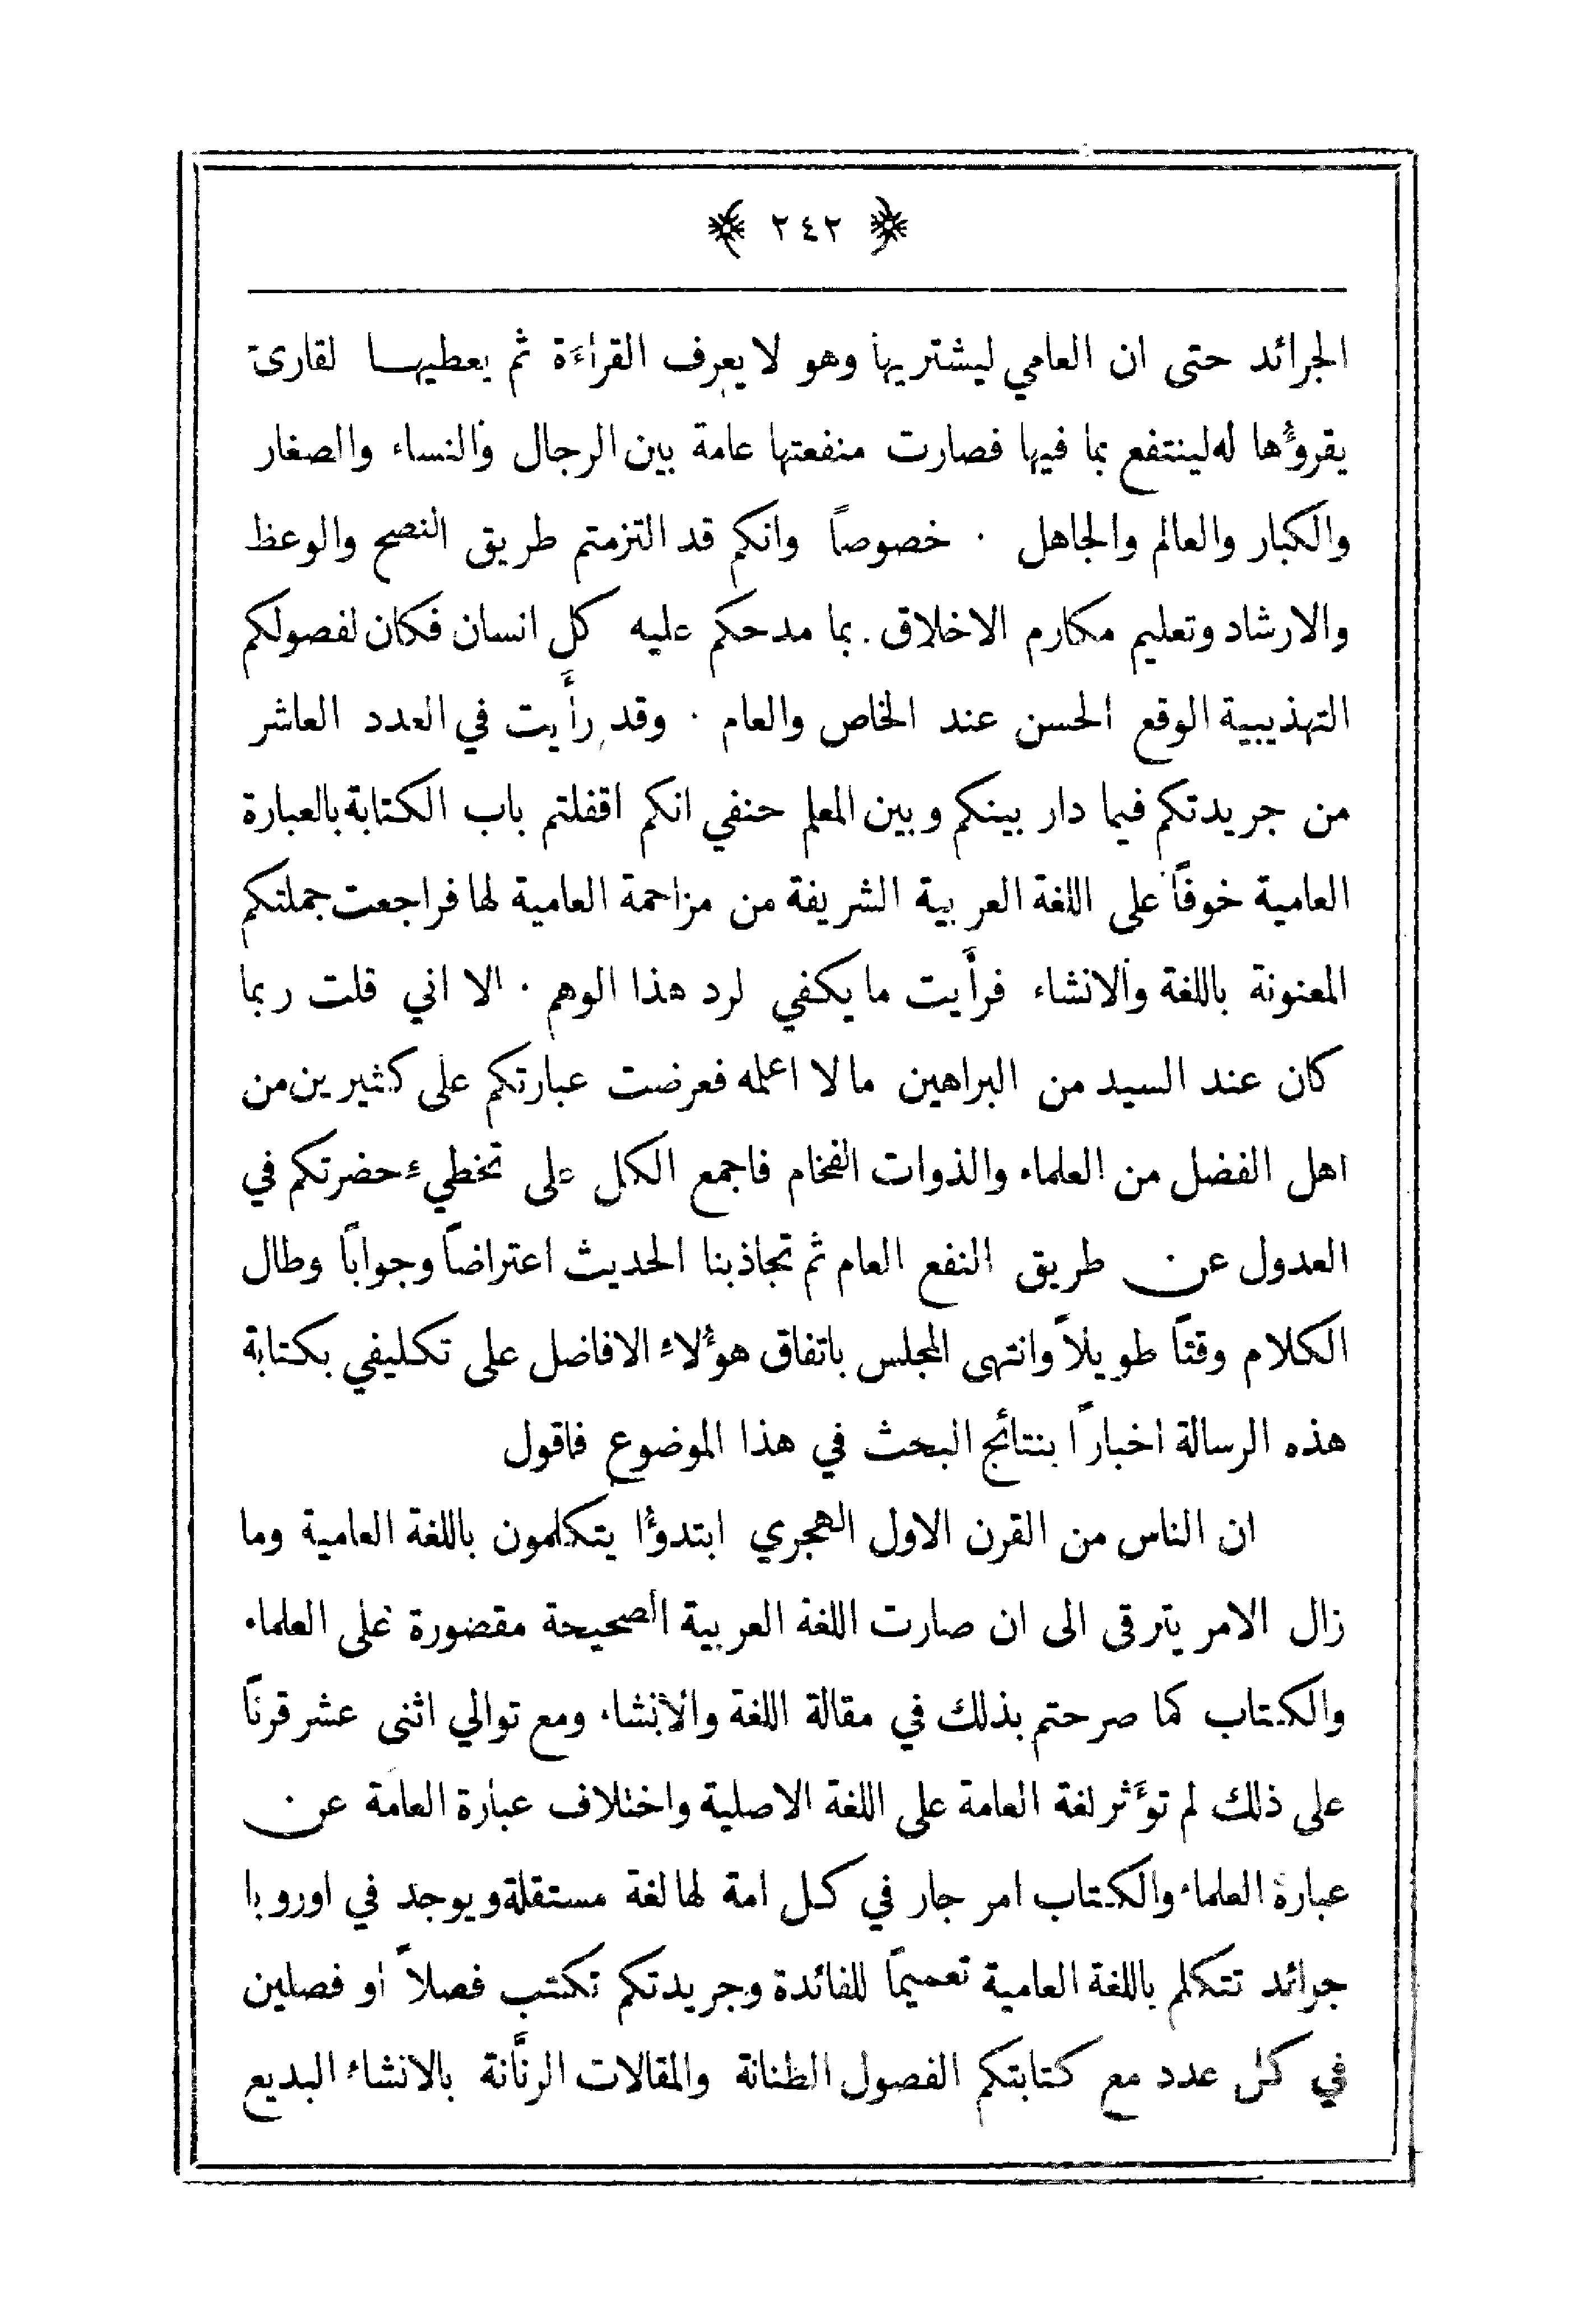 ٢٤٢
الجرائد حتى ان العامي ليشتريها وهو لا يعرف القراءة ثم يعطيها لقارئ
يقروُّها له لينتفع بما فيها فصارت منفعتها عامة بين الرجال والنساء والصغار
والكبار والعالم والجاهل . خصوصاً وانكم قد التزمتم طريق النصح والوعظ
والارشاد وتعليم مكارم الاخلاق . بما مدحكم عليه كل انسان فكان لفصولكم
التهذيبية الوقع الحسن عند الخاص والعام . وقد رأَيت في العدد العاشر
من جريدتكم فيما دار بينكم وبين المعلم حنفي انكم اقفلتم باب الكتابة بالعبارة
العامية خوفاً على اللغة العربية الشريفة من مزاحمة العامية لها فراجعت جملتكم
المعنونة باللغة والانشاء فرأَيت ما يكفي لرد هذا الوهم . الا اني قلت ربما
كان عند السيد من البراهين ما لا اعلمه فعرضت عبارتكم على كثيرين من
اهل الفضل من العلماء والذوات الفخام فاجمع الكل على تخطيء حضرتكم في
العدول عن طريق النفع العام ثم تجاذبنا الحديث اعتراضاً وجواباً وطال
الكلام وقتاً طويلاً وانتهى المجلس باتفاق هوُّلاء الافاضل على تكليفي بكتابة
هذه الرسالة اخباراً بنتائج البحث في هذا الموضوع فاقول
ان الناس من القرن الاول الهجري ابتدوُّا يتكلمون باللغة العامية وما
زال الامر يترقى الى ان صارت اللغة العربية الصحيحة مقضورة على العلماء
والكتاب كما صرحتم بذلك في مقالة اللغة والانشاء ومع توالي اثنى عشر قرناً
على ذلك لم توَّثر لغة العامة على اللغة الاصلية واختلاف عبارة العامة عن
عبارة العلماء والكتاب امر جار في كل امة لها لغة مستقلة ويوجد في اوروبا
جرائد تتكلم باللغة العامية تعميماً للفائدة وجريدتكم تكتب فصلاً او فصلين
في كل عدد مع كتابتكم الفصول الطنانة والمقالات الرنَّانة بالانشاء البديع